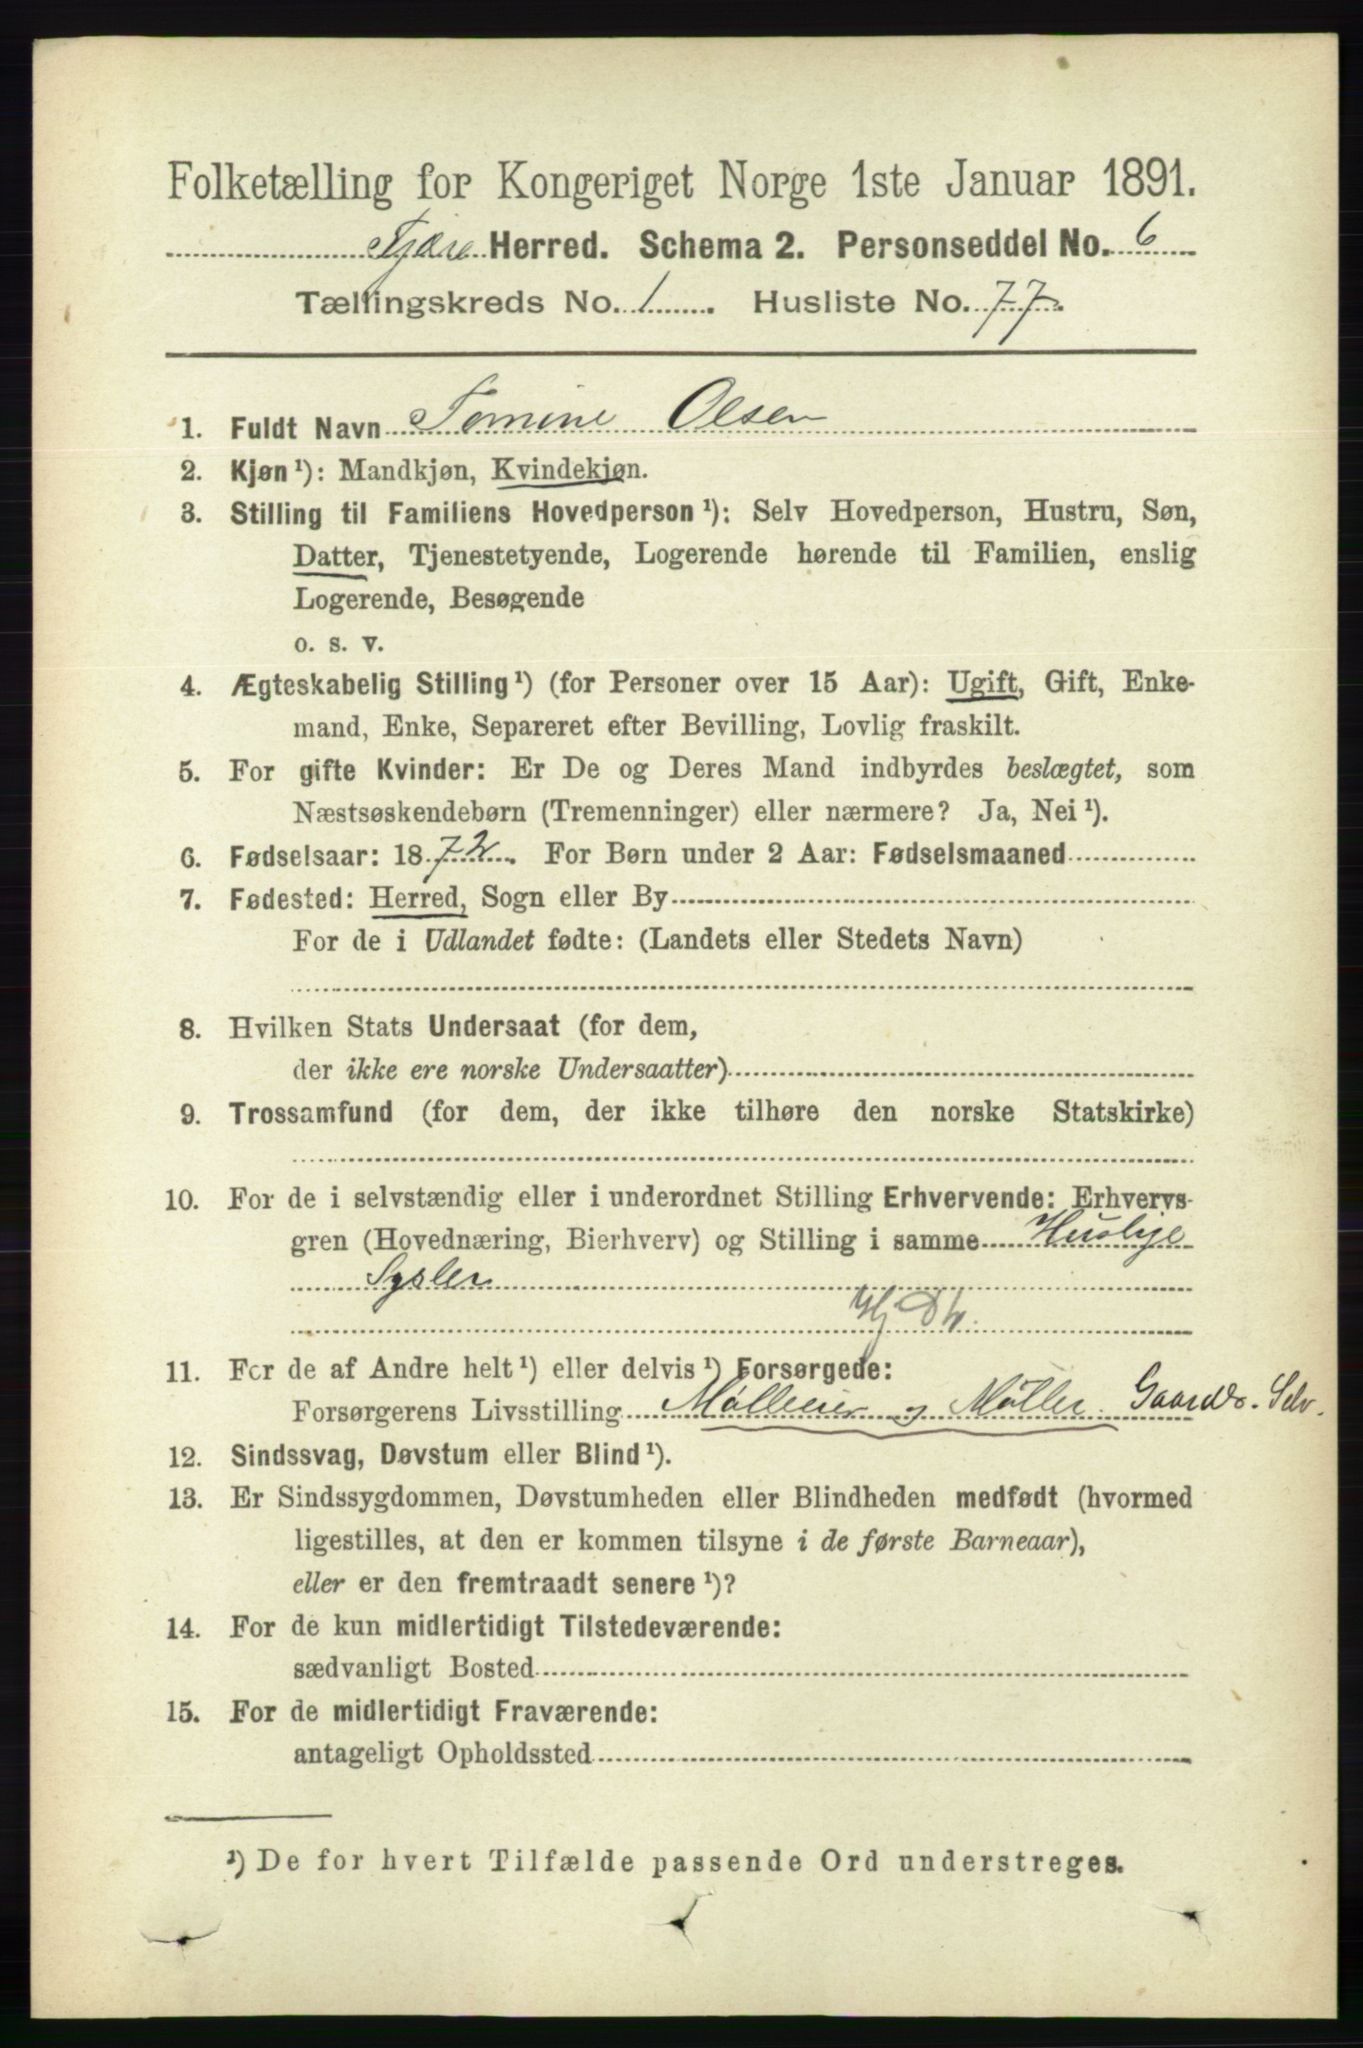 Folketælling for Kongeriget Norge 1ste Januar 1891.
Fjære Herred. Schema 2. Personseddel No. 6
Tællingskreds No. 1. Husliste No. 77.
1. Fuldt Navn Tomine Olsen
2. Kjøn¹): Mandkjøn, Kvindekjøn.
3. Stilling til Familiens Hovedperson¹): Selv Hovedperson, Hustru, Søn,
Datter, Tjenestetyende, Logerende hørende til Familien, enslig
Logerende, Besøgende
o. s. v.
4. Ægteskabelig Stilling¹) (for Personer over 15 Aar): Ugift, Gift, Enke-
mand, Enke, Separeret efter Bevilling, Lovlig fraskilt.
5. For gifte Kvinder: Er De og Deres Mand indbyrdes beslægtet, som
Næstsøskendebørn (Tremenninger) eller nærmere? Ja, Nei¹).
6. Fødselsaar: 1872. For Børn under 2 Aar: Fødselsmaaned
7. Fødested: Herred, Sogn eller By
For de i Udlandet fødte: (Landets eller Stedets Navn)
8. Hvilken Stats Undersaat (for dem,
der ikke ere norske Undersaatter)
9. Trossamfund (for dem, der ikke tilhøre den norske Statskirke)
10. For de i selvstændig eller i underordnet Stilling Erhvervende: Erhvervs-
gren (Hovednæring, Bierhverv) og Stilling i samme Huslige
Sysler
11. For de af Andre helt¹) eller delvis¹) Forsørgede:
Forsørgerens Livsstilling Mølleeier og Møller. Gaardb. Selv.
12. Sindssvag, Døvstum eller Blind¹).
13. Er Sindssygdommen, Døvstumheden eller Blindheden medfødt (hvormed
ligestilles, at den er kommen tilsyne i de første Barneaar),
eller er den fremtraadt senere¹)?
14. For de kun midlertidigt Tilstedeværende:
sædvanligt Bosted
15. For de midlertidigt Fraværende:
antageligt Opholdssted
¹) De for hvert Tilfælde passende Ord understreges.